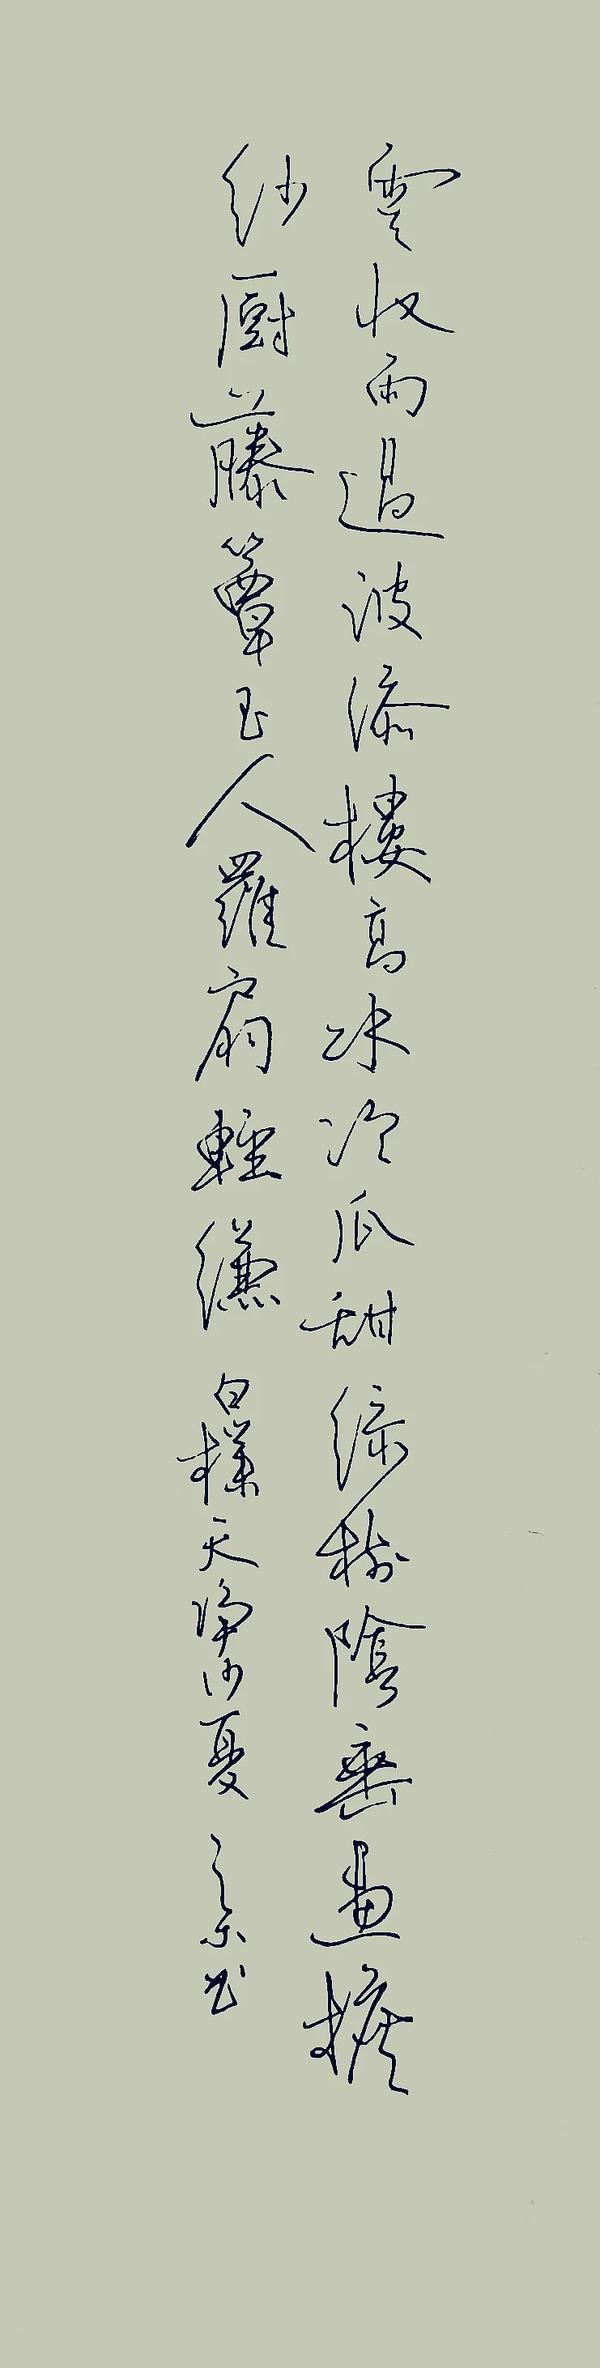 雲收雨過波添樓高水冷瓜甜綠樹陰垂畫檐
紗厨藤簟玉人羅扇輕縑 白樸天净沙夏 书